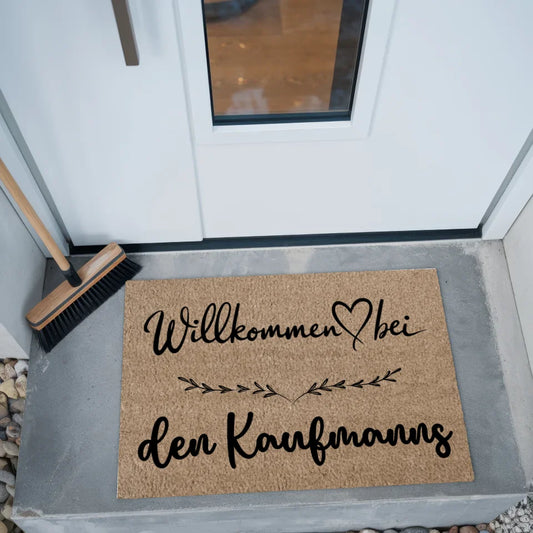 Willkommen bei
den Kaufmanns